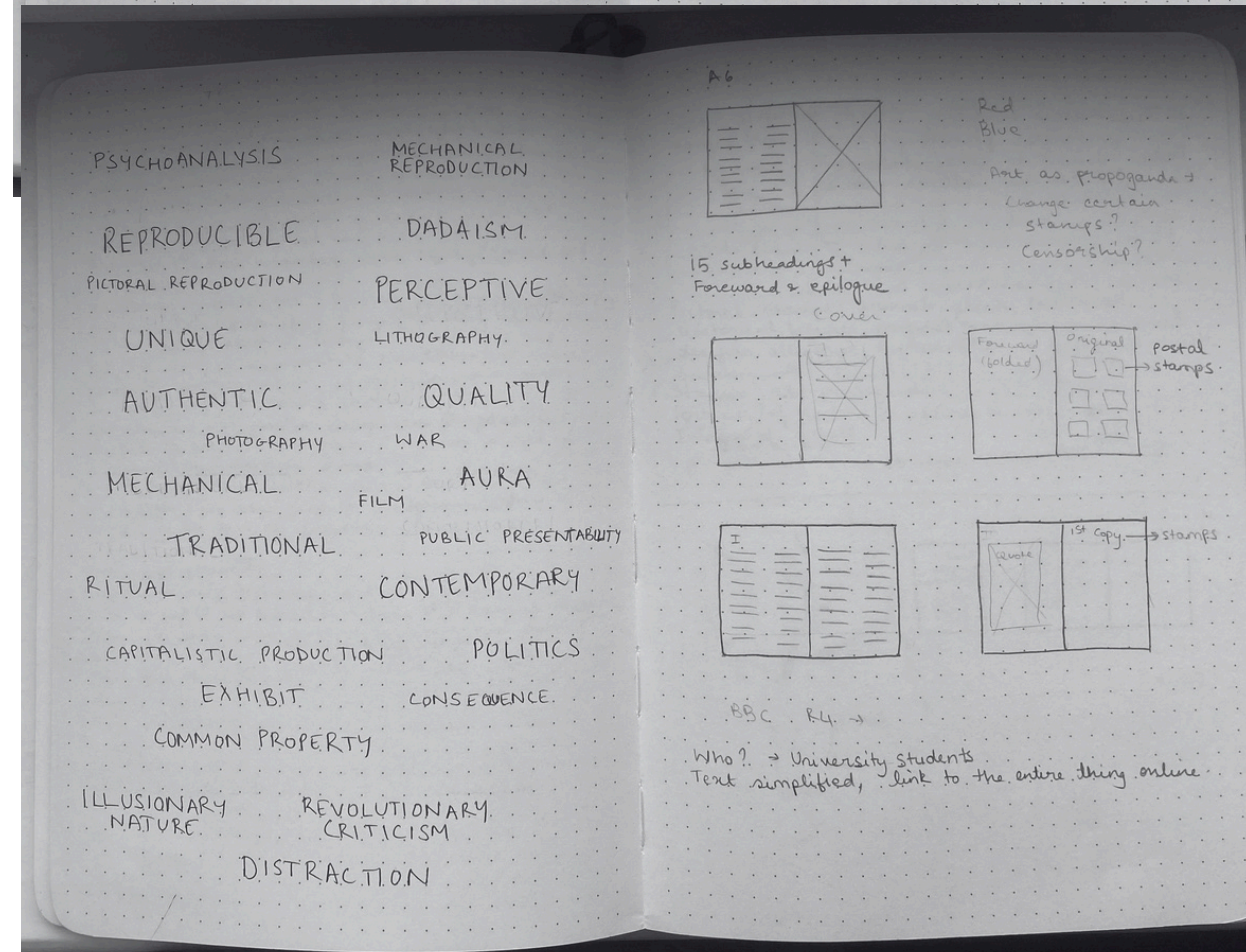 PSYCHOANALYSIS
MECHANICAL
REPRODUCTION
REPRODUCIBLE
DADAISM
PICTORAL REPRODUCTION
PERCEPTIVE
UNIQUE
LITHOGRAPHY
AUTHENTIC
QUALITY
PHOTOGRAPHY
WAR
MECHANICAL
AURA
FILM
TRADITIONAL
PUBLIC PRESENTABILITY
RITUAL
CONTEMPORARY
CAPITALISTIC PRODUCTION
POLITICS
EXHIBIT
CONSEQUENCE
COMMON PROPERTY
ILLUSIONARY
NATURE
REVOLUTIONARY
CRITICISM
DISTRACTION
A6
Red
Blue
Art as propoganda →
Change certain
stamps?
Censorship?
15 subheadings +
Foreward & epilogue
Cover
Foreward
(folded)
Original
postal
→ stamps
I
Quote
1st Copy → stamps
BBC R4 →
Who? → University students
Text simplified, link to the entire thing online